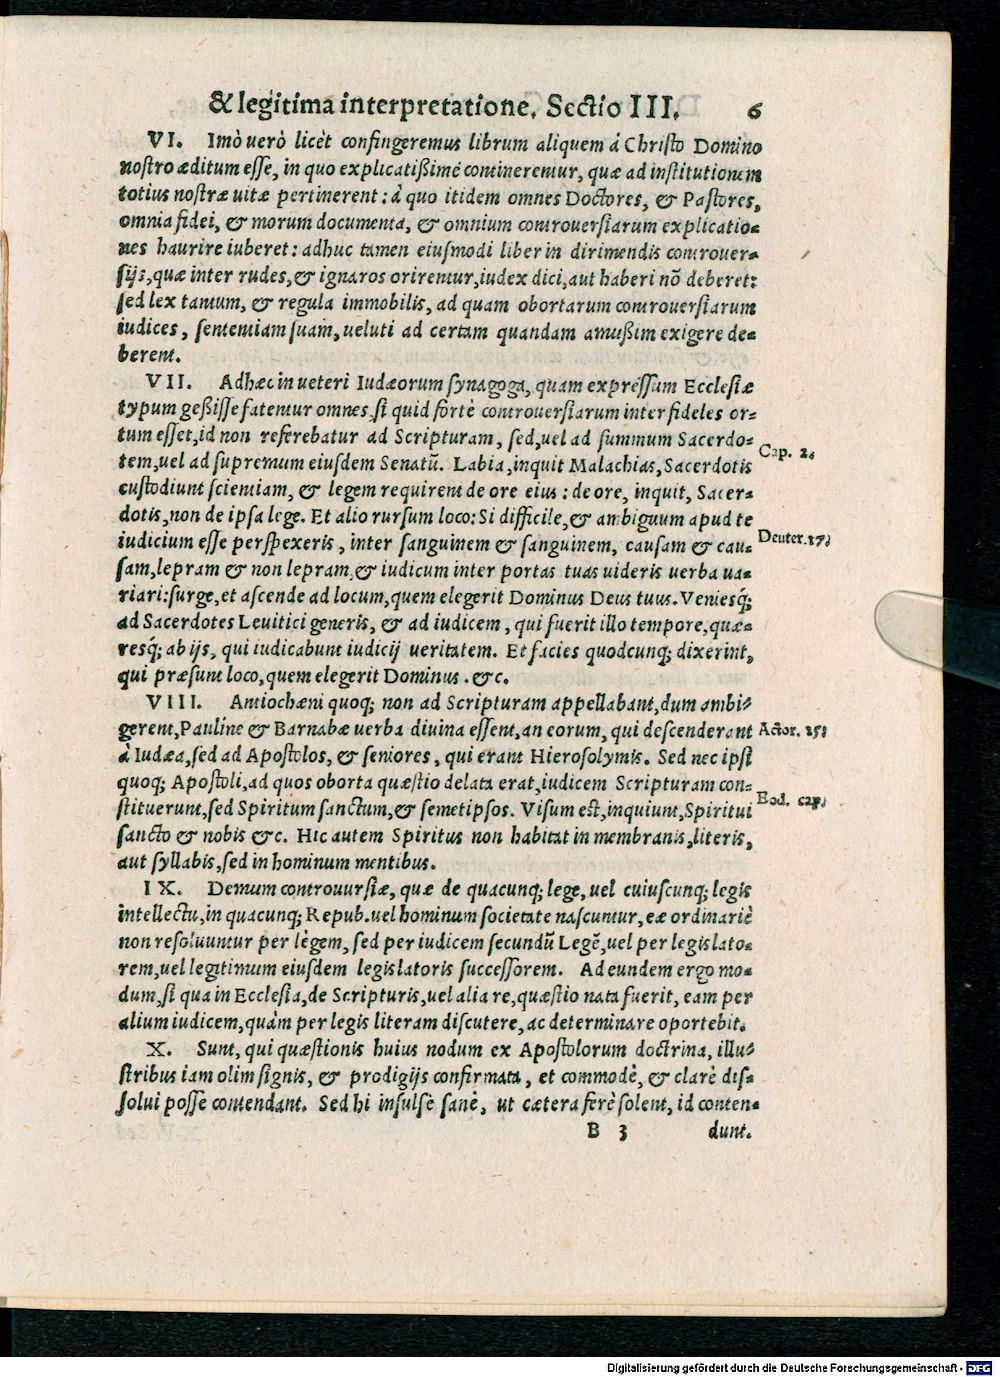 & legitima interpretatione. Sectio III. 6
VI. Imò uerò licèt confingeremus librum aliquem á Christo Domino
nostro æditum esse, in quo explicatißimé contineremur, quæ ad institutionem
totius nostræ uitæ pertinerent: à quo itidem omnes Doctores, & Pastores,
omnia fidei, & morum documenta, & omnium controuersiarum explicatio-
nes haurire iuberet: adhuc tamen eiusmodi liber in dirimendis controuer-
sijs, quæ inter rudes, & ignaros orirentur, iudex dici, aut haberi nõ deberet:
sed lex tantum, & regula immobilis, ad quam obortarum controuersiarum
iudices, sententiam suam, ueluti ad certam quandam amußim exigere de-
berent.
VII. Adhæc in ueteri Iudæorum synagoga, quam expressum Ecclesiæ
typum geßisse fatentur omnes, si quid fortè controuersiarum inter fideles or-
tum esset, id non referebatur ad Scripturam, sed, uel ad summum Sacerdo-
tem, uel ad supremum eiusdem Senatũ. Labia, inquit Malachias, Sacerdotis
Cap. 2.
custodiunt scientiam, & legem requirent de ore eius: de ore, inquit, Sacer-
dotis, non de ipsa lege. Et alio rursum loco: Si difficile, & ambiguum apud te
iudicium esse perspexeris, inter sanguinem & sanguinem, causam & cau-
Deuter. 17.
sam, lepram & non lepram, & iudicum inter portas tuas uideris uerba ua-
riari: surge, et ascende ad locum, quem elegerit Dominus Deus tuus. Veniesq́;
ad Sacerdotes Leuitici generis, & ad iudicem, qui fuerit illo tempore, quæ-
resq́; ab ijs, qui iudicabunt iudicij ueritatem. Et facies quodcunq; dixerint,
qui præsunt loco, quem elegerit Dominus. &c.
VIII. Antiochæni quoq; non ad Scripturam appellabant, dum ambi-
gerent, Pauliné & Barnabæ uerba diuina essent, an eorum, qui descenderant
Actor. 15.
á Iudæa, sed ad Apostolos, & seniores, qui erant Hierosolymis. Sed nec ipsi
quoq; Apostoli, ad quos oborta quæstio delata erat, iudicem Scripturam con-
stituerunt, sed Spiritum sanctum, & semetipsos. Visum est, inquiunt, Spiritui
Eod. cap.
sancto & nobis &c. Hic autem Spiritus non habitat in membranis, literis,
aut syllabis, sed in hominum mentibus.
IX. Demum controuursiæ, quæ de quacunq; lege, uel cuiuscunq; legis
intellectu, in quacunq; Repub. uel hominum societate nascuntur, eæ ordinariè
non resoluuntur per lègem, sed per iudicem secundũ Legẽ, uel per legislato-
rem, uel legitimum eiusdem legislatoris successorem. Ad eundem ergo mo-
dum, si qua in Ecclesia, de Scripturis, uel alia re, quæstio nata fuerit, eam per
alium iudicem, quàm per legis literam discutere, ac determinare oportebit.
X. Sunt, qui quæstionis huius nodum ex Apostolorum doctrina, illu-
stribus iam olim signis, & prodigijs confirmata, et commodè, & clarè dis-
solui posse contendant. Sed hi insulsè sanè, ut cætera ferè solent, id conten-
B 3 dunt.
Digitalisierung gefördert durch die Deutsche Forschungsgemeinschaft - DFG